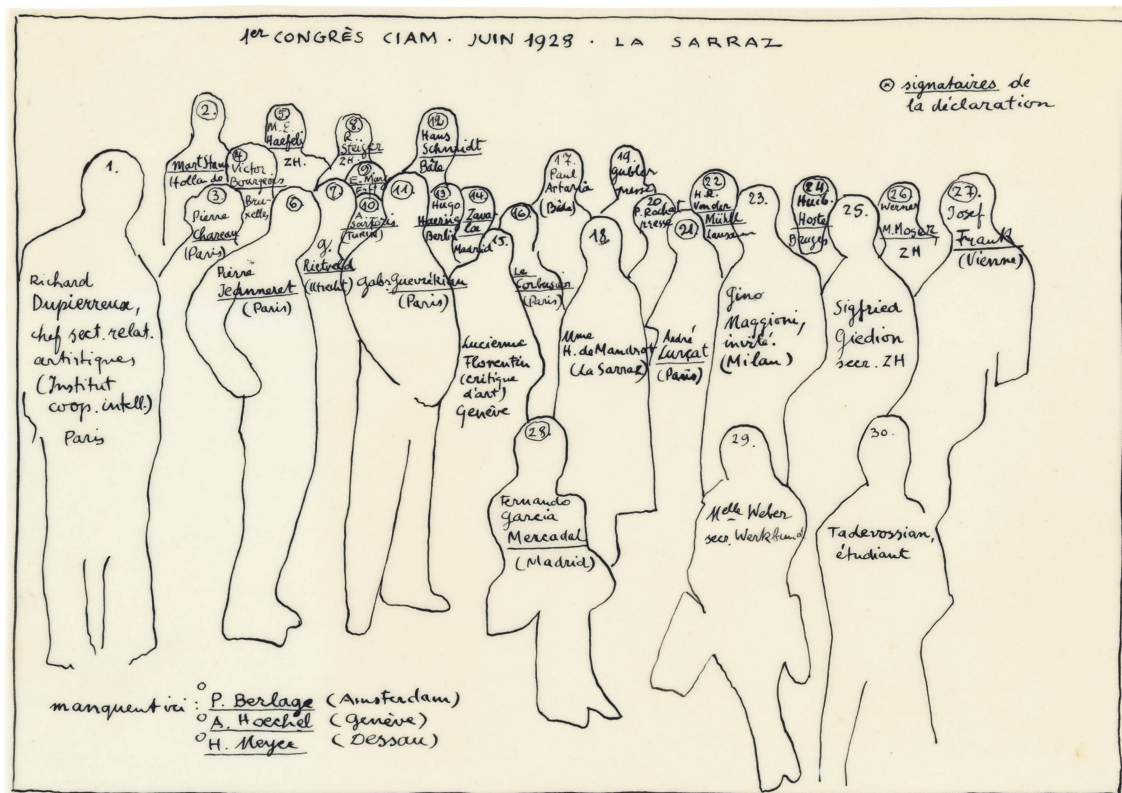 1er CONGRÈS CIAM · JUIN 1928 · LA SARRAZ
signataires de
la déclaration
1.
Richard
Dupierreux,
chef sect. relat.
artistiques
(Institut
coop. intell.)
Paris
2.
Mart Stam
Hollande
3.
Pierre
Chareau
(Paris)
4
Victor
Bourgeois
Bruxelles
5.
M. E.
Haefeli
ZH.
6.
Pierre
Jeanneret
(Paris)
7.
G.
Rietveld
(Utrecht)
8.
R.
Steiger
ZH.
9
E. May
10
A.
Sartoris
(Turin)
11
Gabr. Guevrékian
(Paris)
12
Hans
Schmidt
Bâle
13
Hugo
Haering
Berlin
14.
Zava-
la
Madrid
15.
Lucienne
Florentin
(critique
d'art)
Genève
16.
Le
Corbusier
(Paris)
17.
Paul
Artaria
(Bâle)
18.
Mme
H. de Mandrot
(La Sarraz)
19.
Gubler
presse
20
P. Rochat
presse
21
André
Lurçat
(Paris)
22
H. R.
Von der
Mühll
Lausan
23.
Gino
Maggioni,
invité.
(Milan)
24
Huib.
Hoste
Bruges
25.
Sigfried
Giedion
secr. ZH
26
Werner
M. Moser
ZH
27.
Josef
Frank
(Vienne)
28.
Fernando
Garcia
Mercadal
(Madrid)
29.
Melle Weber
secr. Werkbund
30.
Tadevossian,
étudiant
manquent ici : P. Berlage (Amsterdam)
A. Hoechel (Genève)
H. Meyer (Dessau)